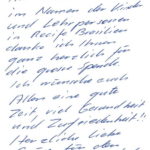 im Namen der Kinder
und Lehrpersonen
in Recife Brasilien
danke ich Ihnen
ganz herzlich für
die grosse Spende.
Ich wünsche euch
Allen eine gute
Zeit, viel Gesundheit
und Zufriedenheit!!
Herzliche Liebe